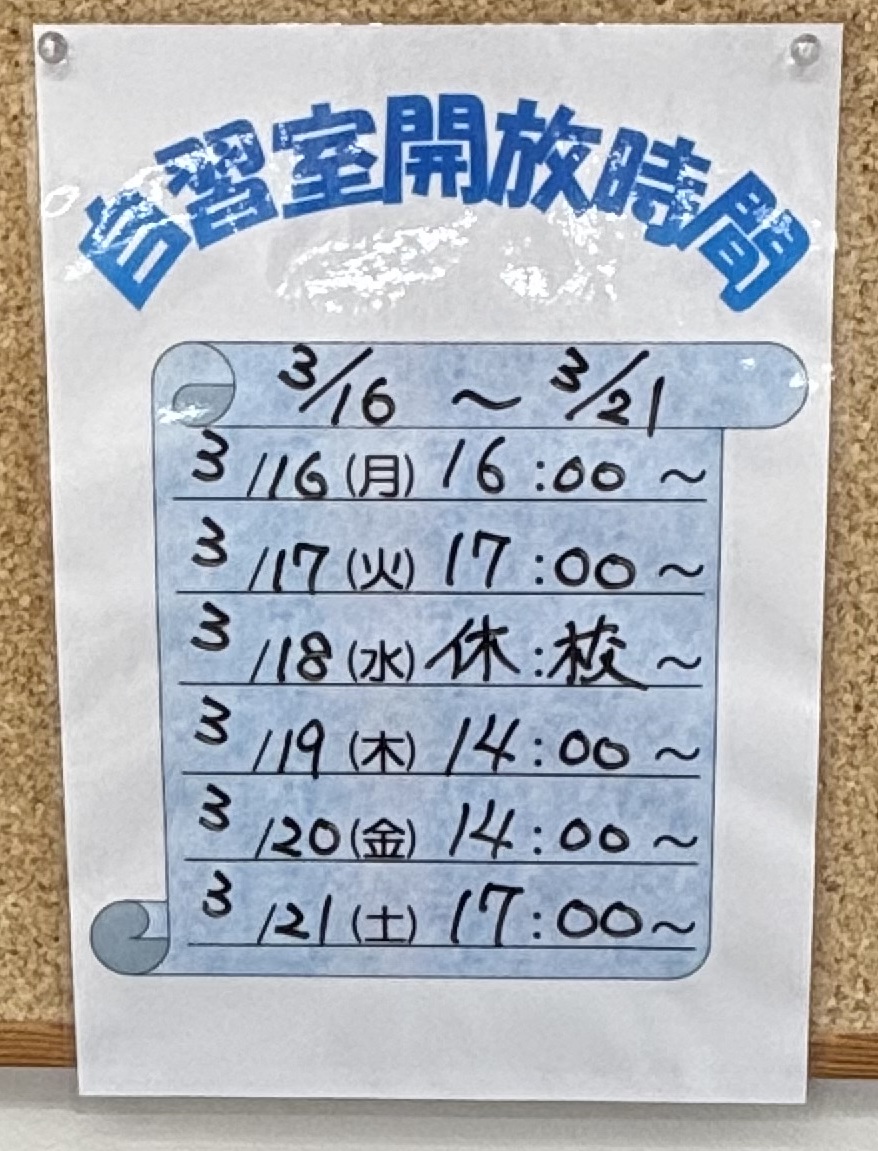 自習室開放時間
3/16 ~ 3/21
3/16(月) 16:00~
3/17(火) 17:00~
3/18(水) 休:校~
3/19(木) 14:00~
3/20(金) 14:00~
3/21(土) 17:00~